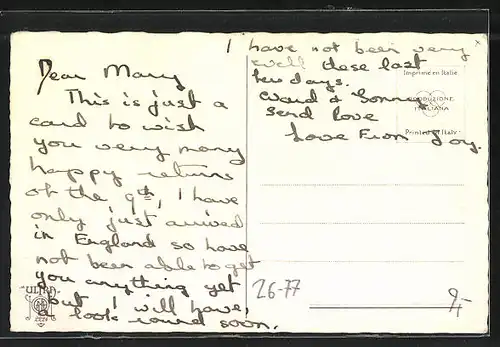 Dear Mary
This is just a
card to wish
you very many
happy returns
of the 9th, I have
only just arrived
in England so have
not been able to get
you anything yet
but I will have,
a look round soon.
I have not been very
well these last
few days.
send love
Love From Joy.
Imprimé en Italie
PRODUZIONE
ITALIANA
Printed in Italy
26-77
9,-